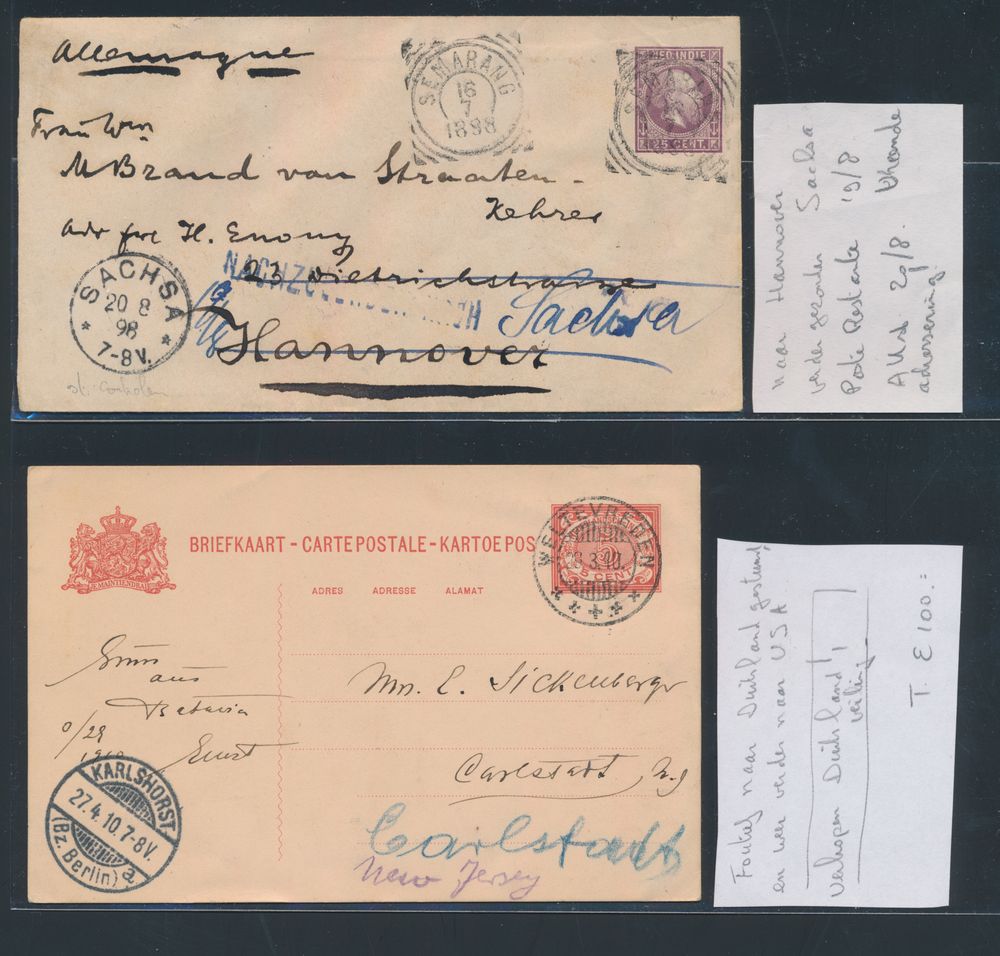 Allemagne
SEMARANG
16
7
1898
NED. INDIE
25 CENT.
M Brand van Straaten -
Kehrer
H. Enony
23 Dietrichstrasse
NACHZUSENDEN NACH
Sachsa
Hannover
SACHSA
20 8
98
7-8V.
naar Hannover
verder gezonden Sachsa
Poste Restante 19/8
Ank 20/8. bekende
adressering
BRIEFKAART - CARTE POSTALE - KARTOE POS
JE MAINTIENDRAI
ADRES ADRESSE ALAMAT
5 CENT
WELTEVREDEN
3.10.
Gruss
aus
Batavia
Ernst
Mr. E. Sickenberger
Carlstadt, N.J
KARLSHORST
27.4.10.7-8V.
(Bz. Berlin) a
Carlstadt
New Jersey
Foutief naar Duitsland gestuurd,
en weer verder naar USA
Verkopen Duitsland!!
veiling
T. E 100.=